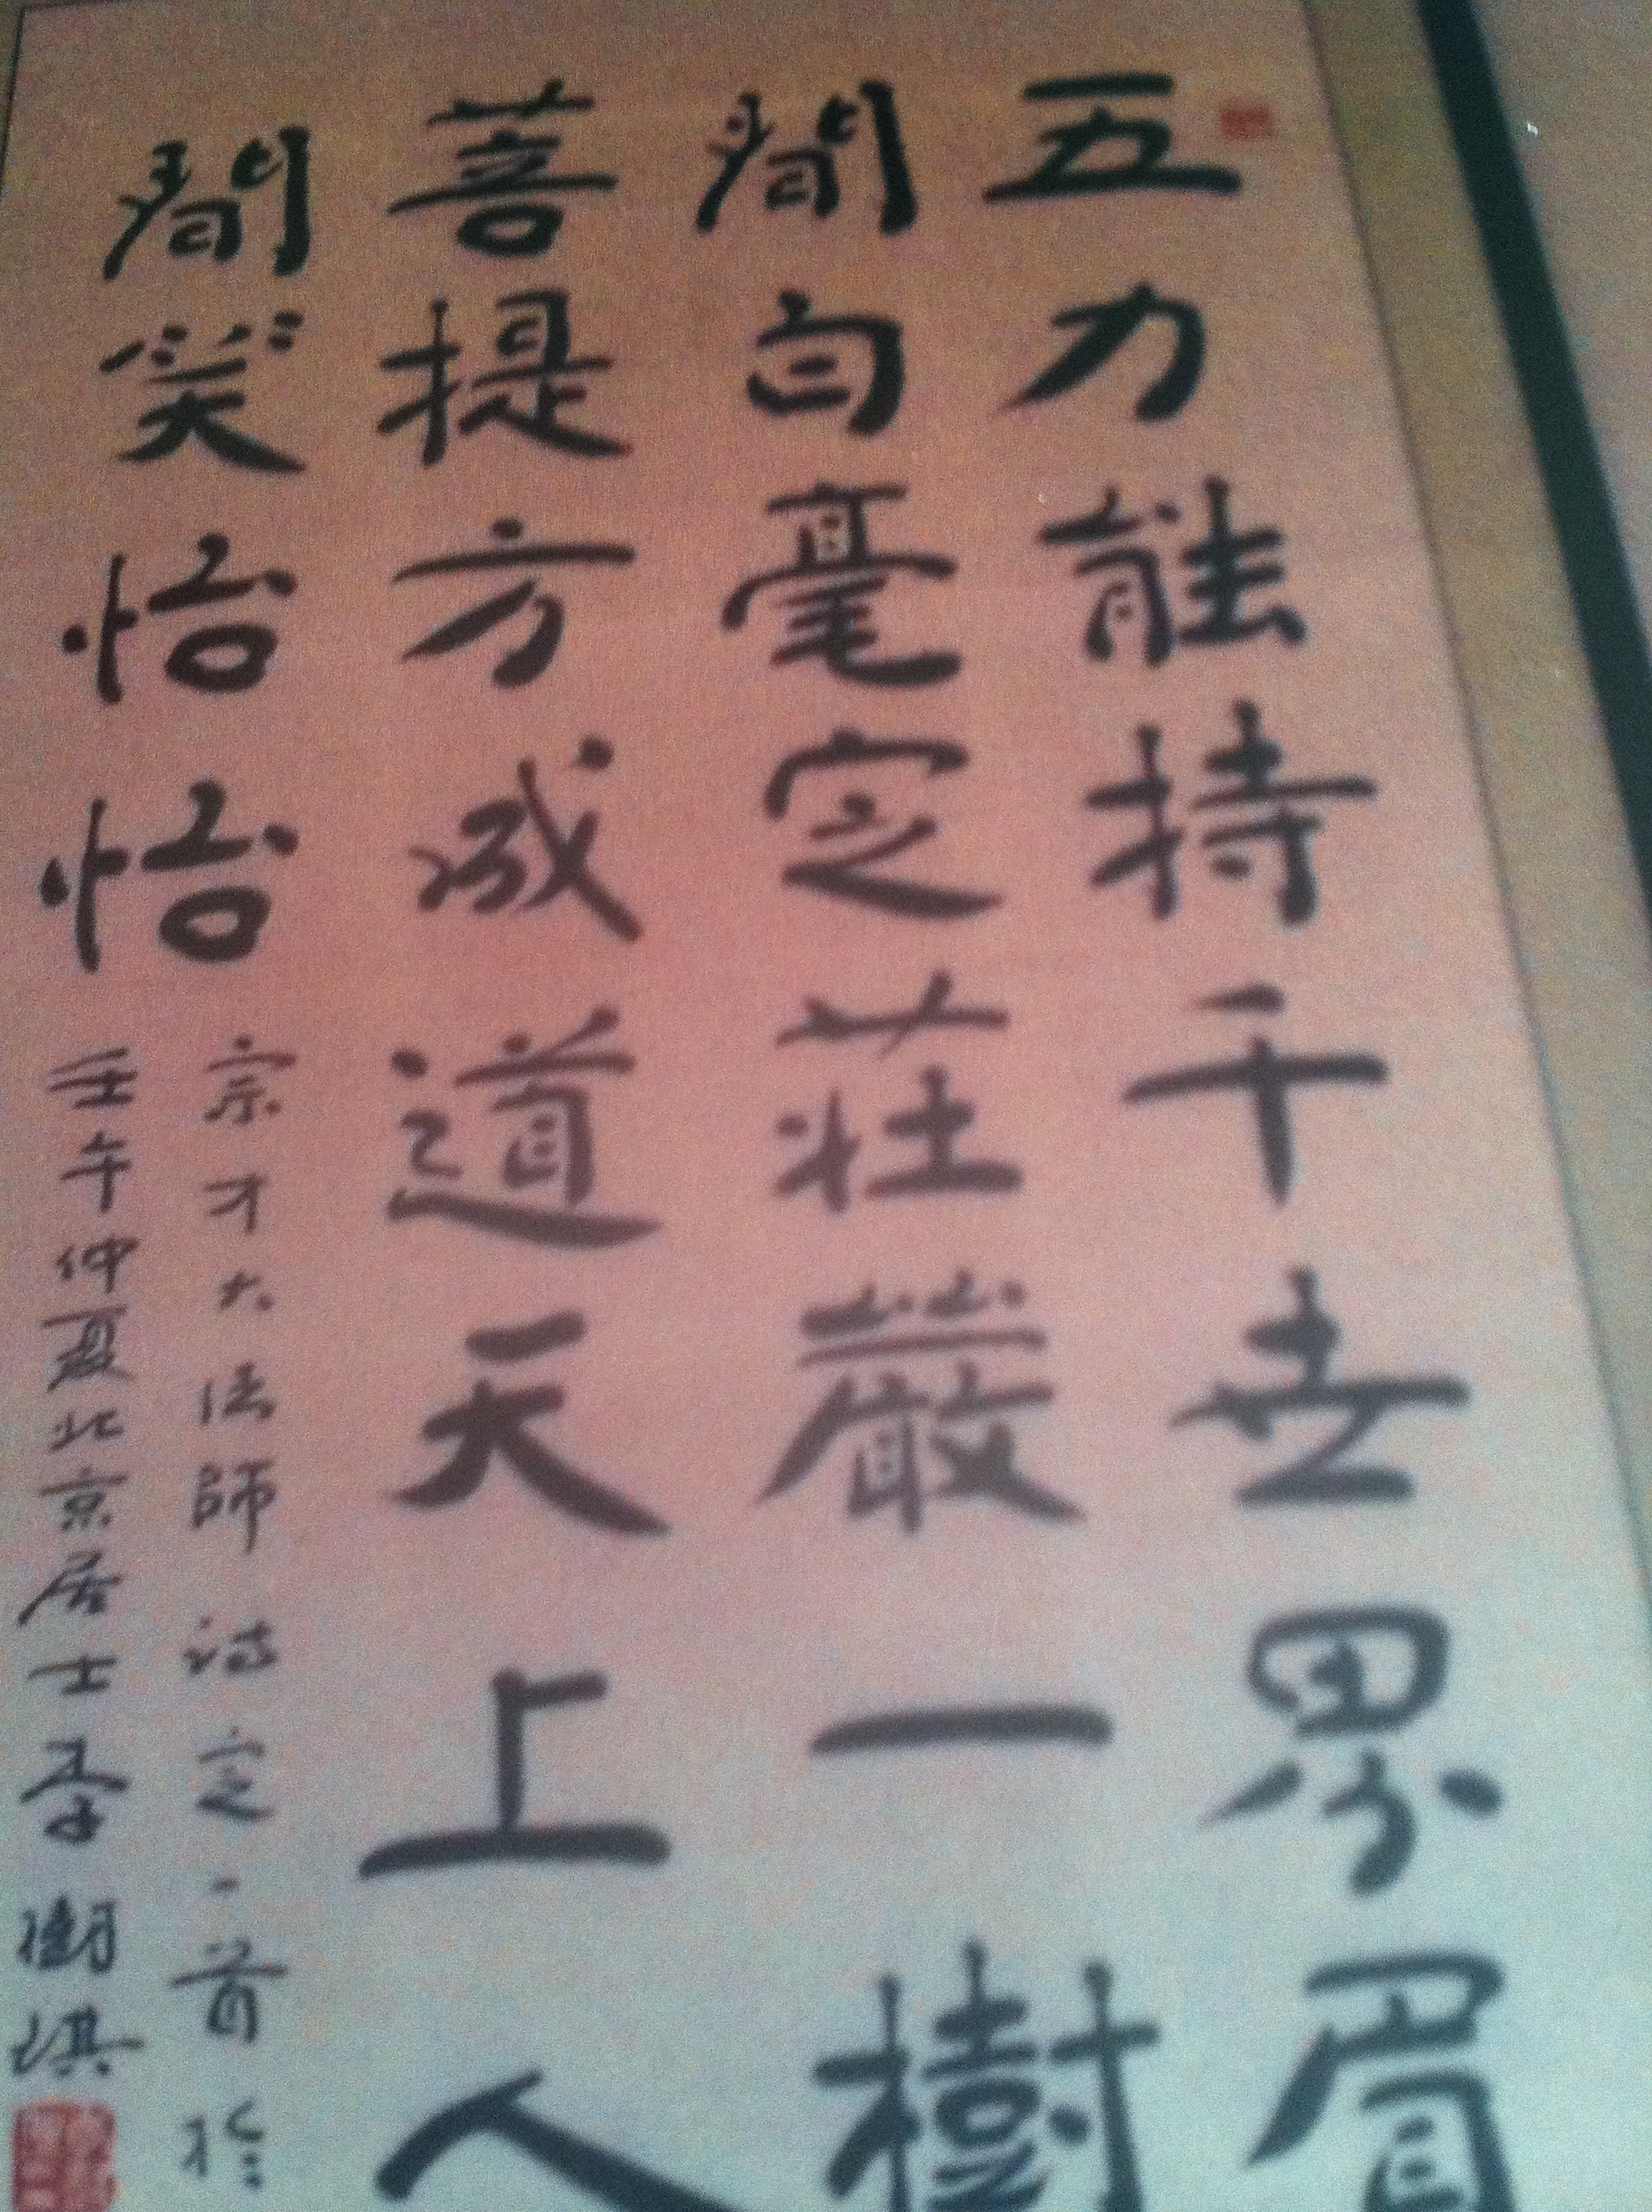 五力能持千世累眉
間白毫定莊嚴一樹
菩提方成道天上人
間笑怡怡
宗才大法師詩定一首於
壬午仲夏北京居士李樹琪